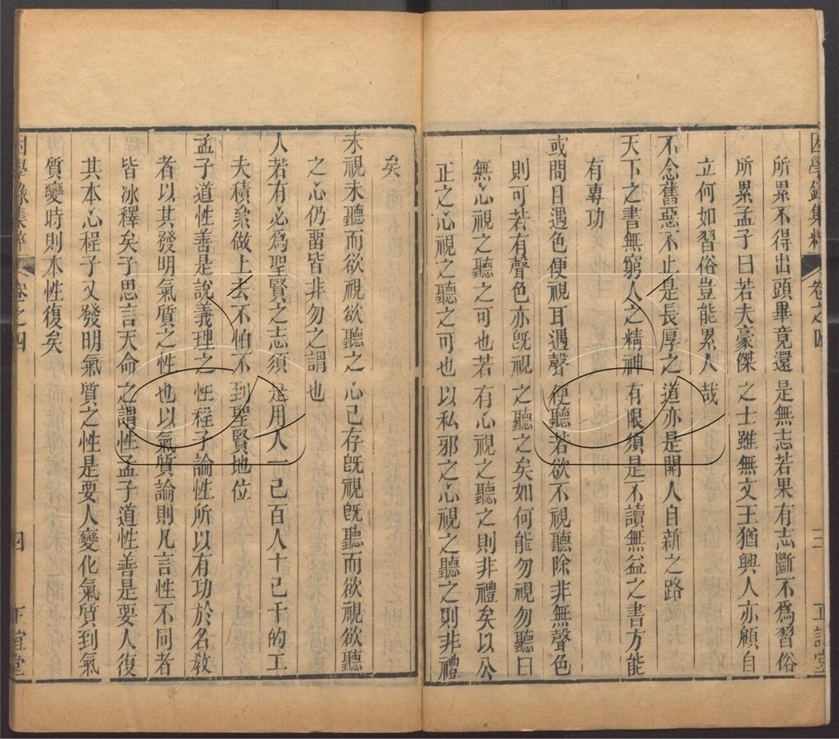 所累不得出頭畢竟還是無志若果有志斷不爲習俗
所累孟子曰若夫豪傑之士雖無文王猶興人亦顧自
立何如習俗豈能累人哉
不念舊惡不止是長厚之道亦是開人自新之路
天下之書無窮人之精神有限須是不讀無益之書方能
有專功
或問目遇色便視耳遇聲便聽若欲不視聽除非無聲色
則可若有聲色亦旣視之聽之矣如何能勿視勿聽曰
無心視之聽之可也若有心視之聽之則非禮矣以公
正之心視之聽之可也以私邪之心視之聽之則非禮
困學錄集粹 卷之四 三 正誼堂
矣
未視未聽而欲視欲聽之心已存旣視旣聽而欲視欲聽
之心仍畱皆非勿之謂也
人若有必爲聖賢之志須是用人一己百人十己千的工
夫積累做上去不怕不到聖賢地位
孟子道性善是說義理之性程子論性所以有功於名教
者以其發明氣質之性也以氣質論則凡言性不同者
皆冰釋矣子思言天命之謂性孟子道性善是要人復
其本心程子又發明氣質之性是要人變化氣質到氣
質變時則本性復矣
困學錄集粹 卷之四 四 正誼堂